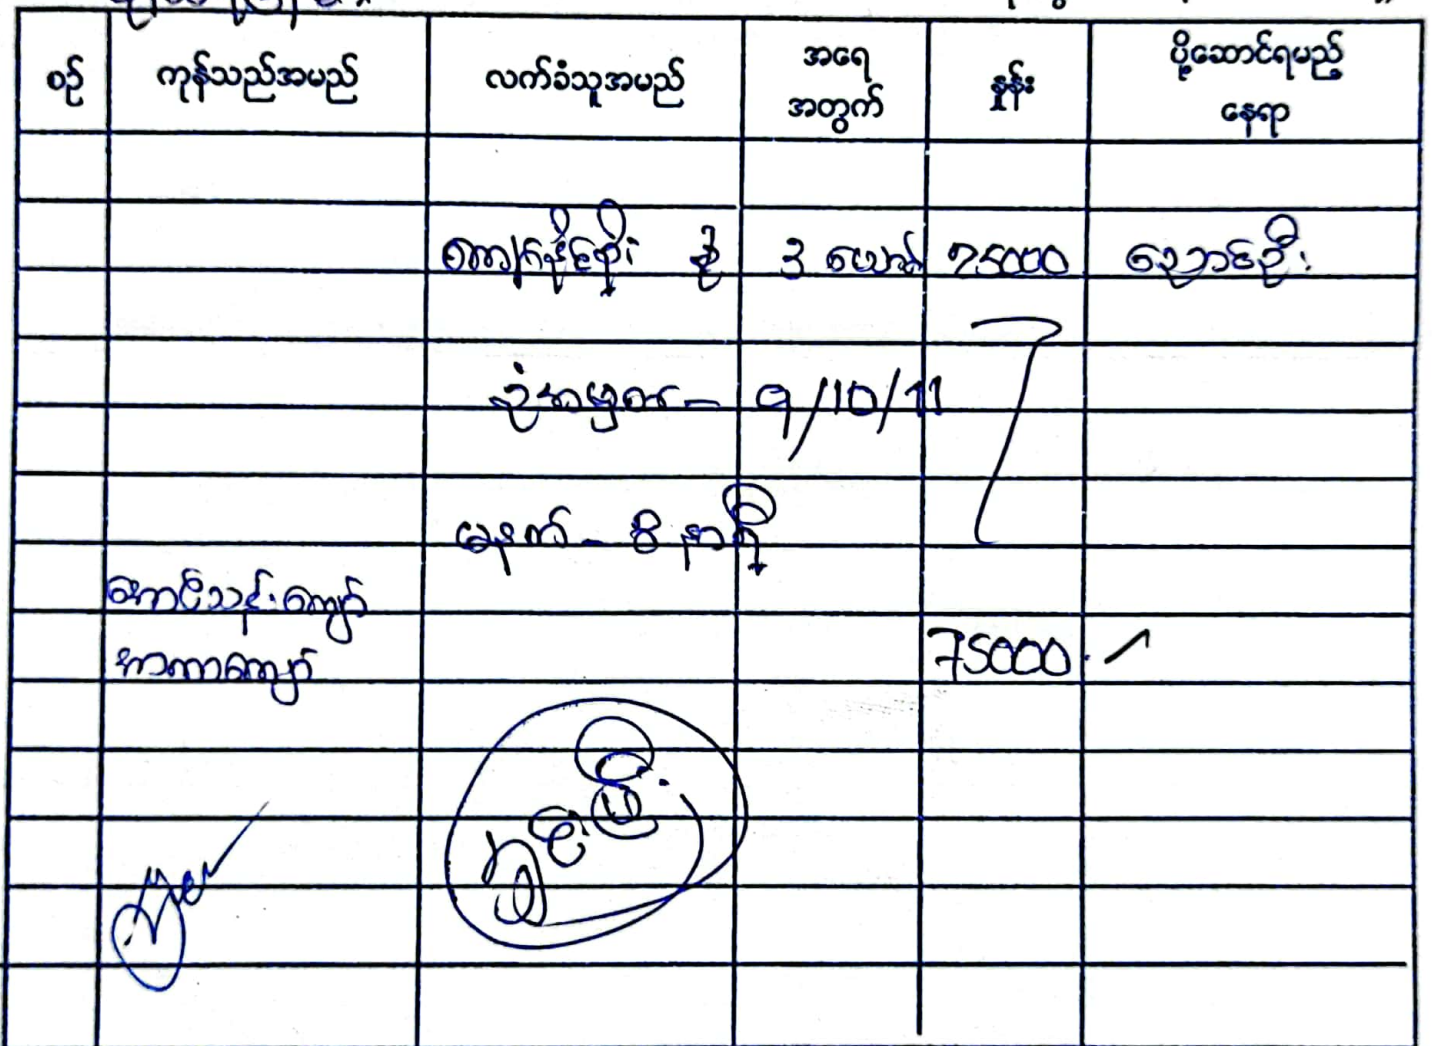 စဉ် ကုန်သည်အမည် လက်ခံသူအမည် အရေအတွက် နှုန်း ပို့ဆောင်ရမည့်နေရာ
3 ယောက် 75000 ညောင်ဦး
ခုံအမှတ် - 9/10/11
မနက် - 8 နာရီ
အောင်သန်းကျော်
အာကာကျော် 75000
ရှင်းပြီး